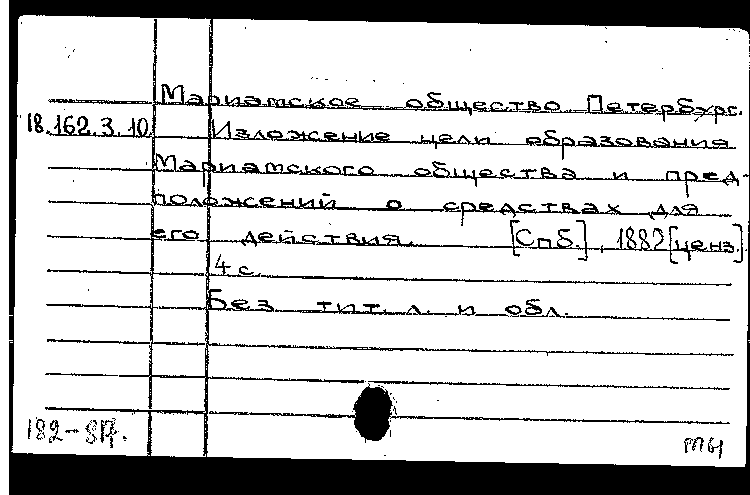 Мариамское общество Петербург.
18.162.3.10 Изложение цели образования
Мариамского общества и пред-
положений о средствах для
его действия. [Спб.], 1882 [ценз.]
4 с.
Без тит. л. и обл.
182-